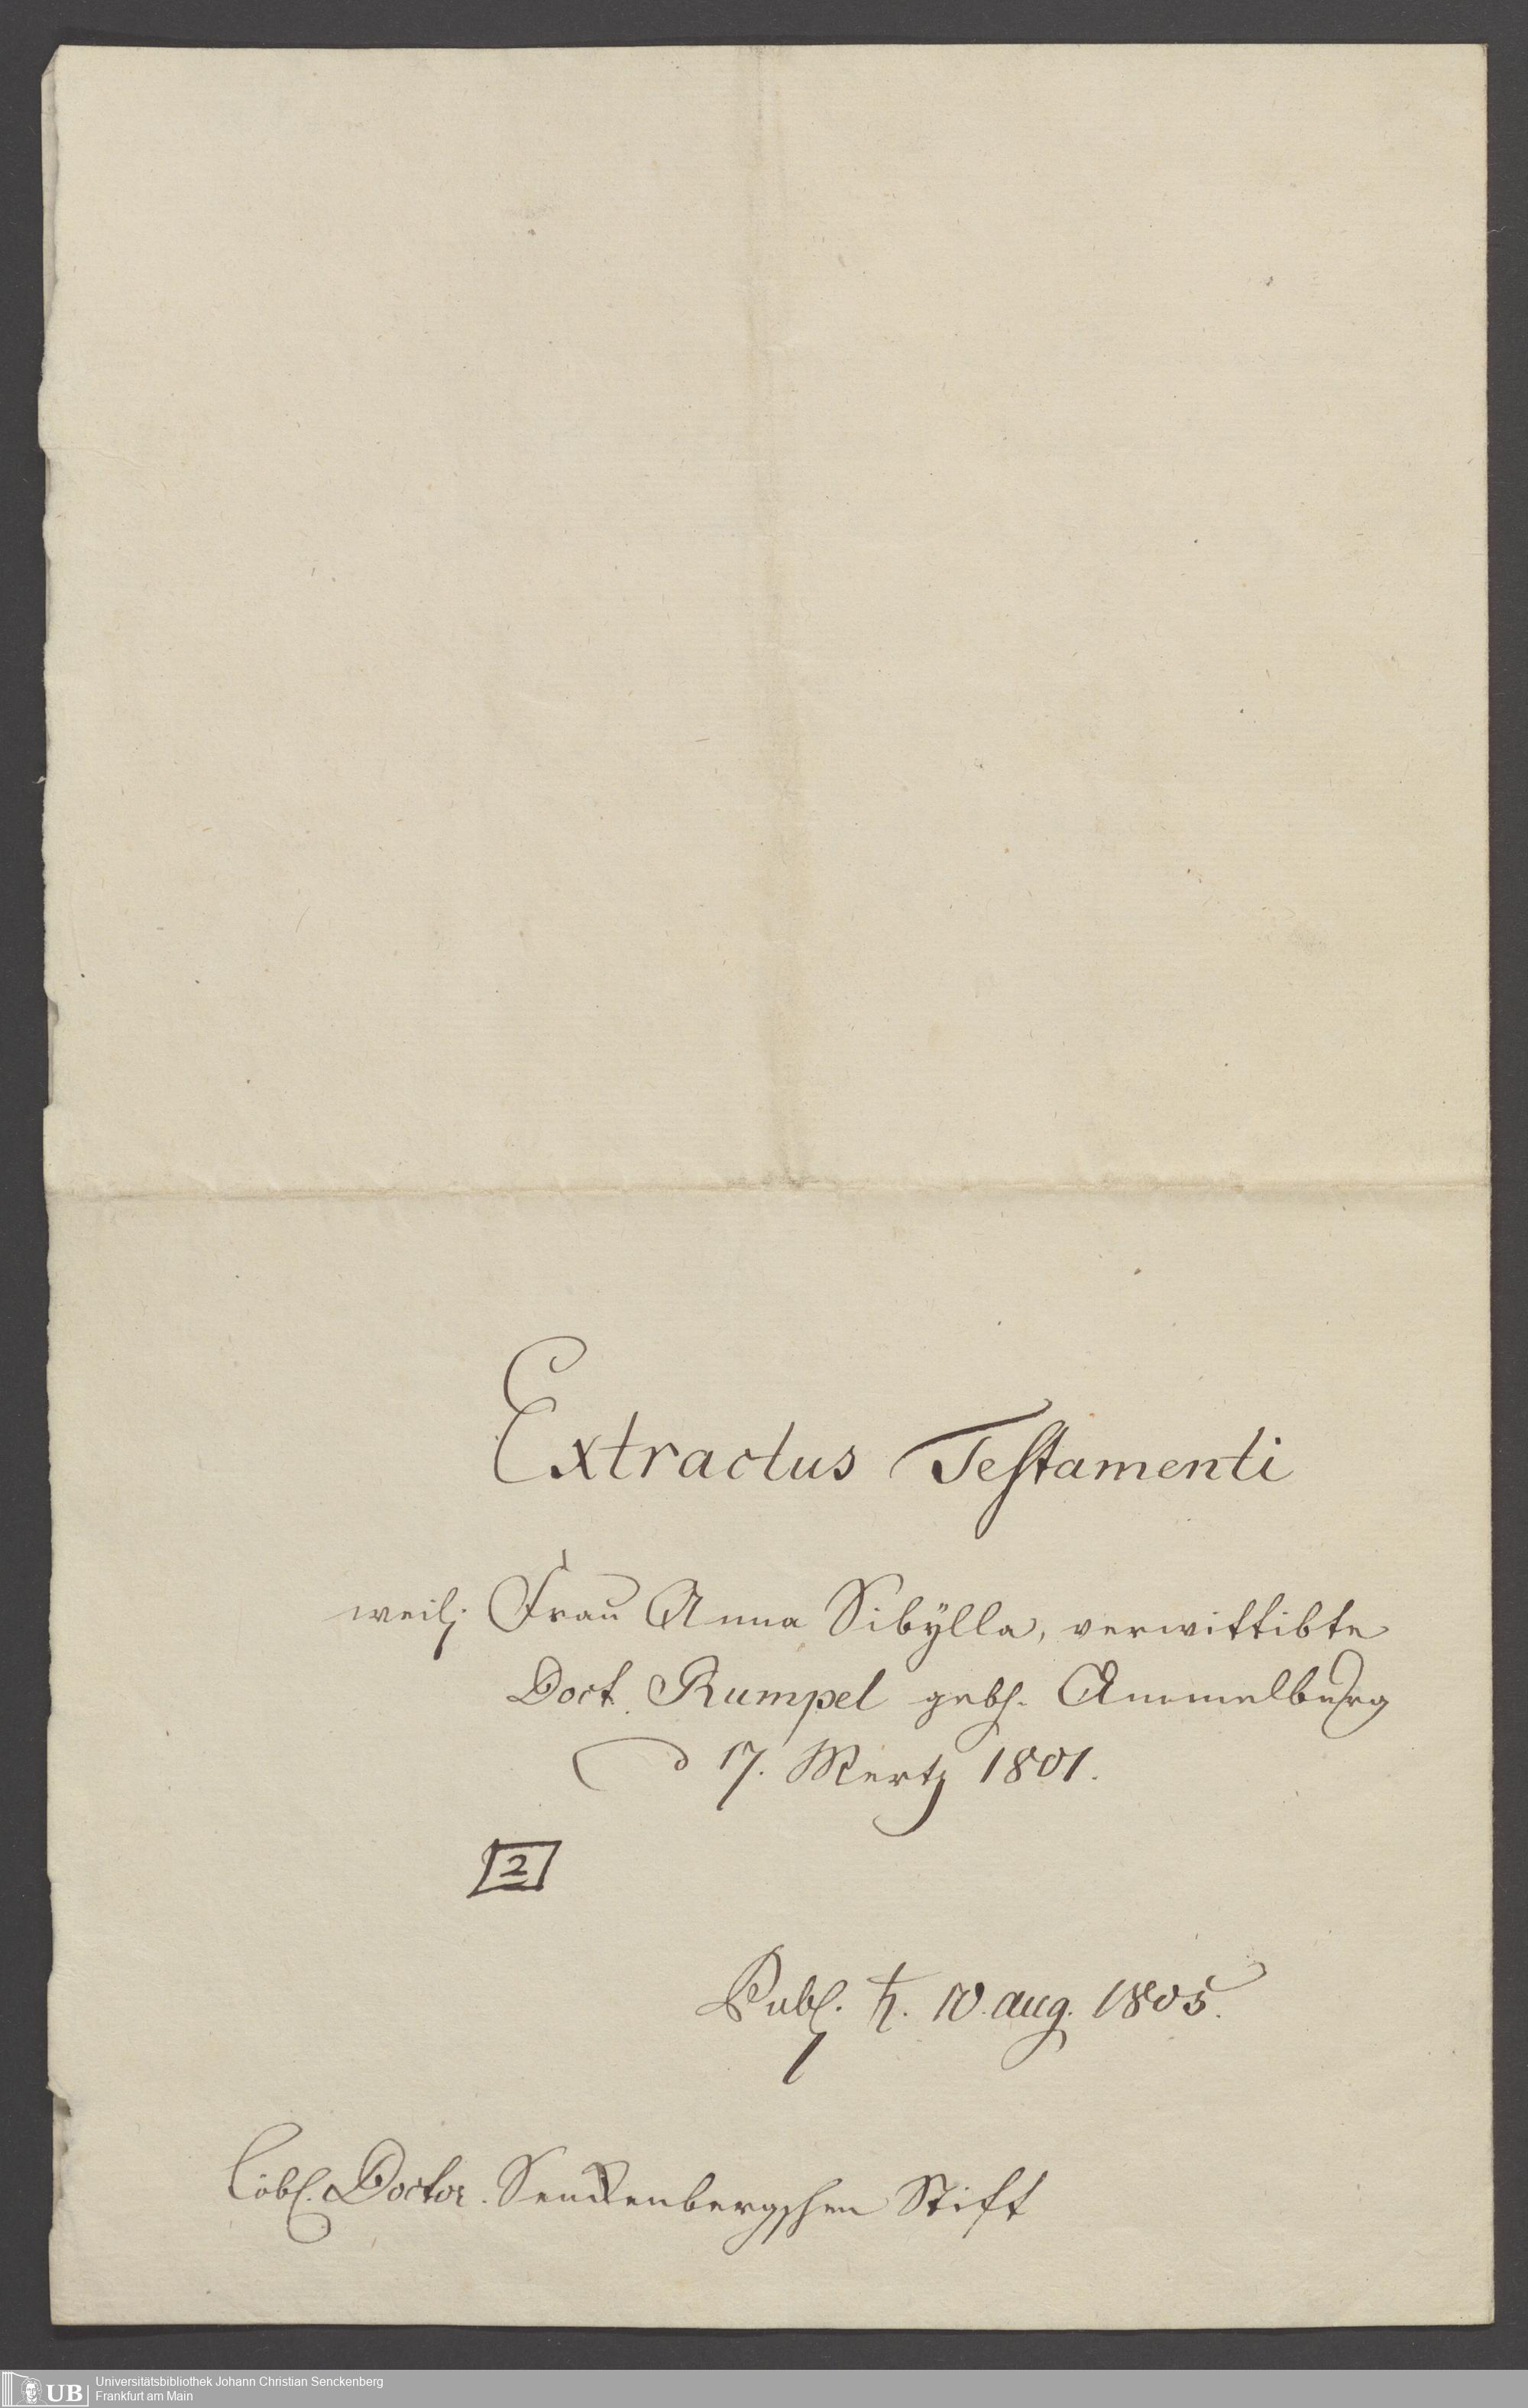 Extractus Testamenti
weil. Frau Anna Sibÿlla, verwittibte
Doct. Rumpel gebh. Ammelburg
d 17. Mertz 1801.
2
Publ. ♄. 10. aug. 1805.
Löbl. Doctor. Senckenbergschen Stift
UB
Universitätsbibliothek Johann Christian Senckenberg
Frankfurt am Main